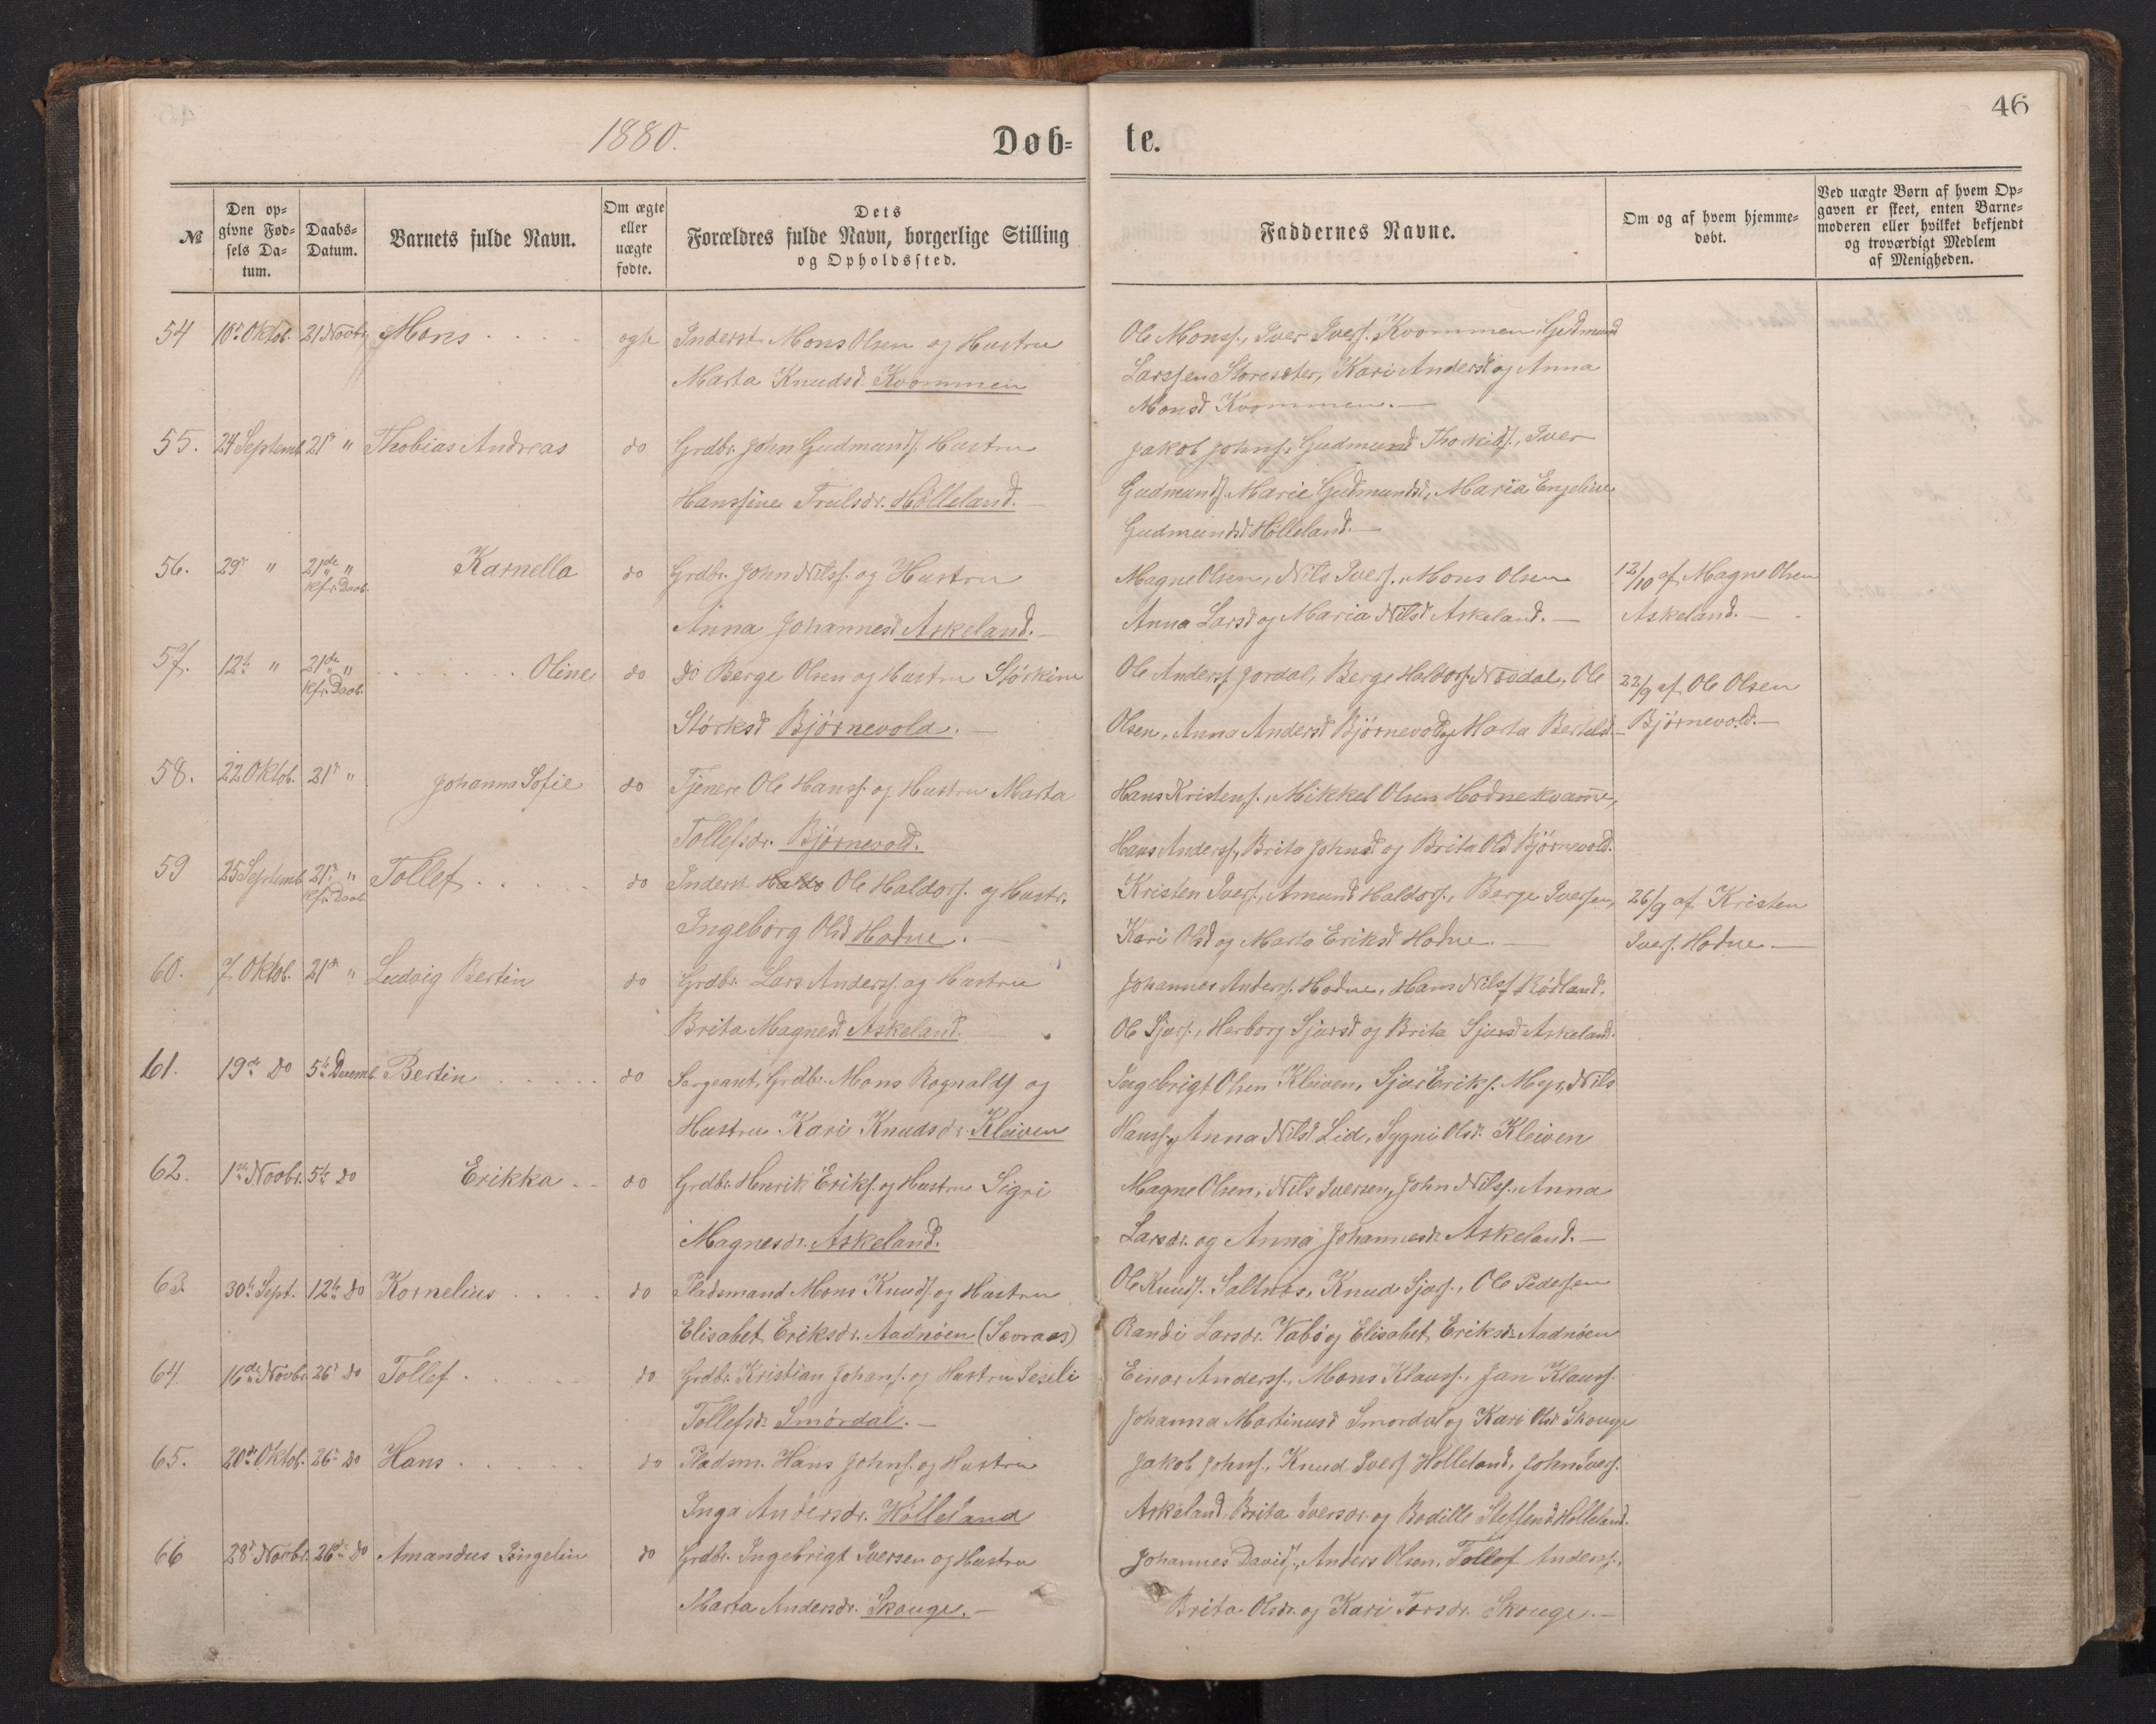 46
1880.
Døb-
te.
№
Den op-
givne Fød-
sels Da-
tum.
Daabs-
Datum.
Barnets fulde Navn.
Om ægte
eller
uægte
fødte.
Dets
Forældres fulde Navn, borgerlige Stilling
og Opholdssted.
Faddernes Navne.
Om og af hvem hjemme-
døbt.
Ved uægte Børn af hvem Op-
gaven er skeet, enten Barne-
moderen eller hvilket bekjendt
og troværdigt Medlem
af Menigheden.
54 10de Oktob. 21 Novbr Mons ægte Inderst Mons Olsen og Hustru
Marta Knudsd. Kvommen
Ole Monss., Iver Iverss. Kvommen, Gudmund
Larssen Storesæter, Kari Andersd og Anna
Monsd Kvommen.
55. 24 Septemb. 21de " Thobias Andreas do Grdbr. John Gudmunds. Hustru
Hanssine Trulsdr. Hölleland.
Jakob Johns., Gudmund Thorkids., Iver
Gudmunds. Marie Gudmundsd., Maria Engeline
Gudmundsd Hölleland.
56. 29de " 21de " Karnella do Grdbr. John Nilss. og Hustru
Kfr. Daab.
Anna Johannesd Askeland.
Magne Olsen, Nils Iverss., Mons Olsen
Anna Larsd og Maria Nilsd Askeland.
12/10 af Magne Olsen
Askeland.
57. 12te " 21de " Oline do do Berge Olsen og Hustru Störkine
Kfr. Daab.
Störksd Björnevold.
Ole Anderss. Jordal, Berge Haldors. Nødal, Ole
Olsen, Anna Andersd Björnevold og Marta Bertelsd.
22/9 af Ole Olsen
Björnevold.
58. 22 Oktob. 21de " Johanna Sofie do Tjener Ole Hanss. og Hustru Marta
Tollefsdr. Björnevold.
Hans Kristens., Mikkel Olsen Hodnekvame,
Hans Anderss., Brita Johnsd og Brita Olsd Björnevold.
59 25 Septemb. 21de " Tollef do Inderst Ole Haldors. og Hustr.
Kfr. Daab.
Ingeborg Olsd Hodne.
Kristen Iverss., Amund Haldors., Berge Iverssen,
Kari Olsd og Marta Eriksd Hodne.
26/9 af Kristen
Iverss. Hodne
60. 7 Oktob. 21de " Ludvig Bertin do Grdbr. Lars Anderss. og Hustru
Brita Magnesd Askeland
Johannes Anderss. Hodne, Hans Nilss. Rödland,
Ole Sjurs., Herborg Sjursd og Brita Sjursd Askeland.
61. 19de do 5te Decemb. Bertin do Sergeant, Grdbr. Mons Rognalds. og
Hustru Kari Knudsdr. Kleiven
Ingebrigt Olsen Kleiven, Sjur Eriks. Myr, Nils
Hanss. og Anna Nilsd Lid, Sygni Olsd. Kleiven
62. 1ste Novbr. 5te do Erikka do Grdbr. Henrik Eriks. og Hustru Sigri
Magnesdr. Askeland.
Magne Olsen, Nils Iversen, John Nilss., Anna
Larsdr. og Anna Johannesd. Askeland.
63. 30te Sept. 12te do Kornelius do Pladsmand Mons Knuds. og Hustru
Elisabet Eriksdr. Aadnöen (Sævraas)
Ole Knuds. Saltnes, Knud Sjurs., Ole Pedersen
Randi Larsdr. Vabö og Elisabet Eriksdr. Aadnöen
64 16de Novbr. 26de do Tollef do Grdbr. Kristian Johans. og Hustru Seseli
Tollefsdr. Smördal.
Einar Anderss., Mons Klauss., Jan Klauss.
Johanna Martinusd Smordal og Kari Olsd Skouge
65. 20de Oktob. 26de do Hans do Pladsm. Hans Johns. og Hustru
Inga Andersdr. Hölleland
Jakob Johns., Knud Iverss. Hölleland, John Iverss.
Askeland, Brita Iversdr. og Bodille Steffensd Hölleland.
66 28de Novbr. 26de do Amandus Ingelin do Grdbr. Ingebrigt Iversen og Hustru
Marta Andersdr. Skouge.
Johannes Davids., Anders Olsen, Tollef Anderss.,
Brita Olsdr. og Kari Torsdr. Skouge.